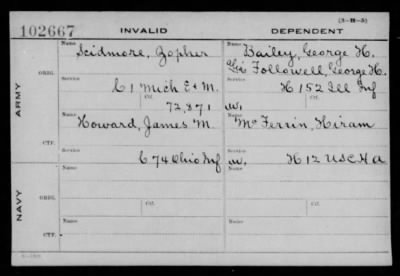 (3-H-5)
102667 INVALID DEPENDENT
Name Scidmore, Zopher Name Bailey, George H.
Alias Followell, George H.
ORIG. Service C 1 Mich E & M. Service H 152 Ill Inf
ARMY Ctf. 72,871 Ctf. W.
Name Howard, James M. Name McFerrin, Hiram
CTF. Service C 74 Ohio Inf Service W. H 12 USCHA
Name Name
ORIG.
NAVY Ctf. Ctf.
Name Name
CTF.